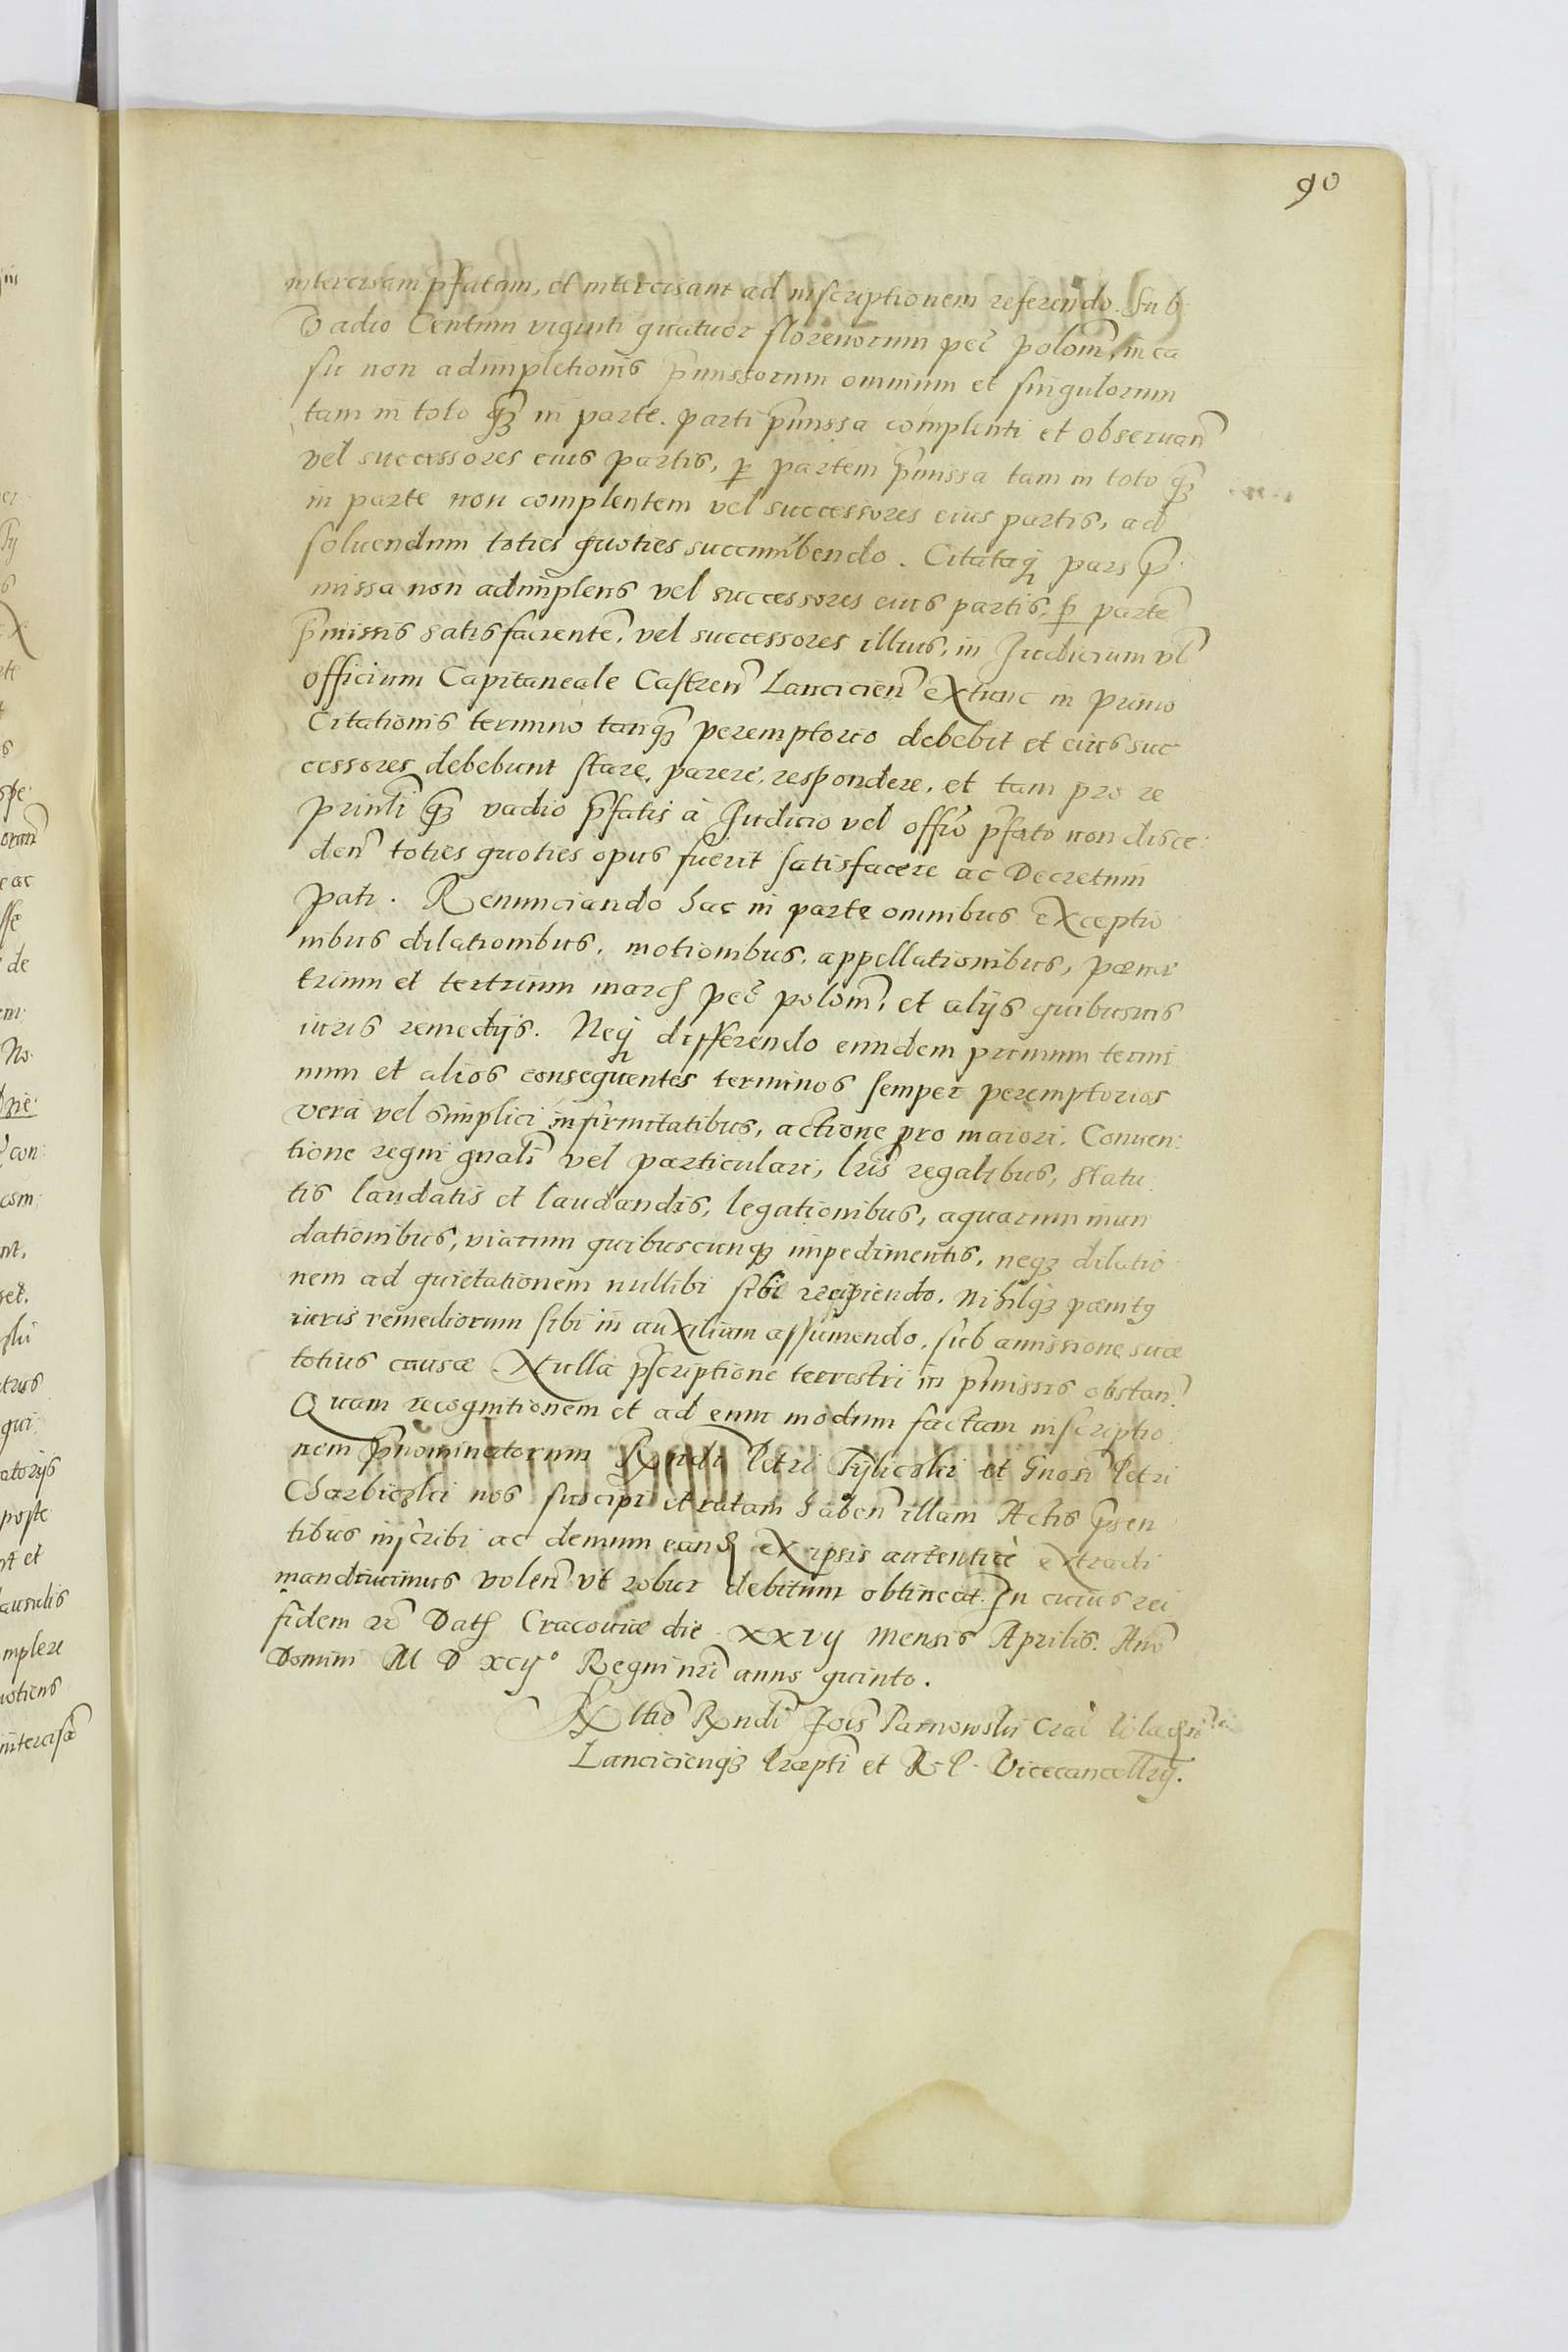 90
intercisam pfatam, et intercisam ad inscriptionem referendo. Sub
Vadio Centum viginti quatuor florenorum pec̃ polom̃, in ca
su non adimpletionis p̃missorum omnium et singulorum
tam in toto q̃ꝫ in parte. parti p̃missa complenti et obseruañ
vel successores eius partis, ꝑ partem p̃missa tam in toto q̃ꝫ
in parte non complentem vel successores eius partis, ad
soluendum toties quoties succumbendo. Citataqꝫ pars p̃
missa non adimplens vel successores eius partis, ꝑ partẽ
p̃missis satisfacientẽ, vel successores illius, in Judicium vl̃
officium Capitaneale Castreñ Lancicieñ extunc in primo
Citationis termino tanq̃ꝫ peremptorio debebit et eius suc
cessores debebunt stare, parere, respondere, et tam pro re
princl̃i q̃ꝫ vadio p̃fatis à Judicio vel offi͂o p̃fato non disce:
deñ toties quoties opus fuerit satisfacere ac Decretum
pati. Renunciando hac in parte omnibus exceptio
nibus dilationibus, motionibus, appellationibus, pœnæ
trium et tertrium marcꝭ pec̃ polom̃, et alijs quibusuis
iuris remedijs. Neqꝫ differendo eundem primum termi
num et alios consequentes terminos semper peremptorios
vera vel simplici infirmitatibus, actione pro maiori. Conuen:
tione regni gñali vel particulari, lr̃is regalibus, statu
tis laudatis et laudandis, legationibus, aquarum inun
dationibus, viarum quibuscunqꝫ impedimentis, neqꝫ dilatio
nem ad quietationem nullibi sibi recipiendo. Nihilqꝫ pœnitꝰ
iuris remediorum sibi in auxilium assumendo, sub amissione suæ
totius causæ. Nulla p̃scriptione terrestri in p̃missis obstañ.
Quam recognitionem et ad eum modum factam inscriptio:
nem p̃nominatorum Rñdi Petri Tylicski et Gñosi Petri
Charbicski nos suscipi et ratam habeñ illam Actis p̃sen
tibus inscribi ac demum eandꝭ ex ipsis autenticè extradi
mandauimus voleñ vt robur debitum obtineat. In cuius rei
fidem r͂ Datꝭ Cracouiæ die XXVIJ Mensis Aprilis. Añ͂o
Domini M D XCIJ° Regni nr̃i anno quinto.
Rl̃tio Rñdi Jois̃ Tarnowski
Lancicieñqꝫ Præpt̃i et R. P. Vicecancellrij.